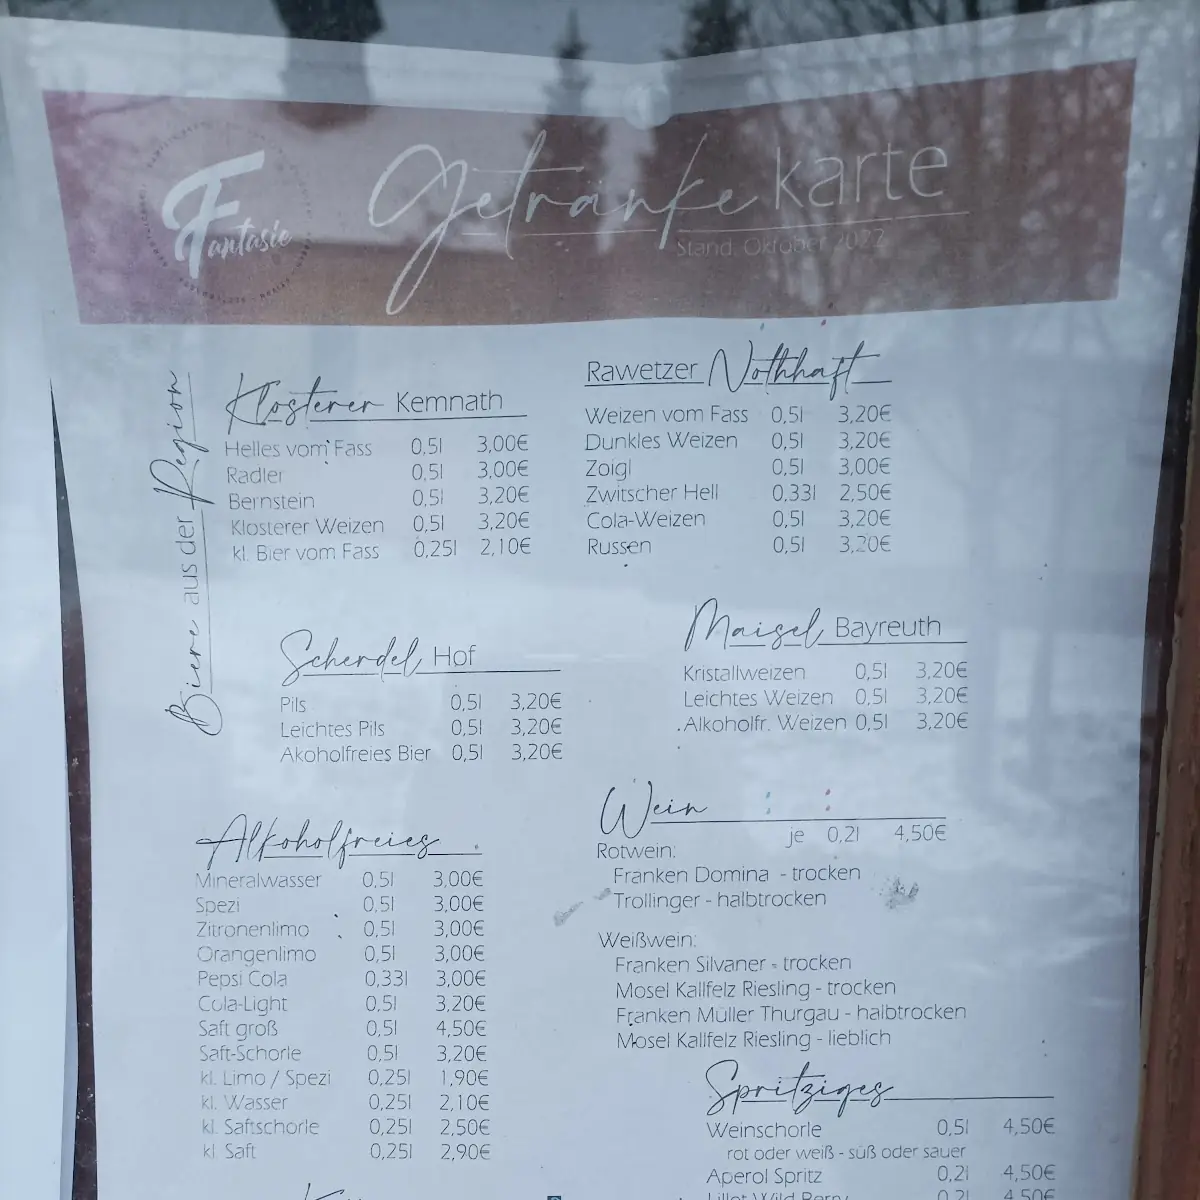 Fantasie
Getränkekarte
Stand Oktober 2022
Biere aus der Region
Klosterer Kemnath
Helles vom Fass 0,5l 3,00€
Radler 0,5l 3,00€
Bernstein 0,5l 3,20€
Klosterer Weizen 0,5l 3,20€
kl. Bier vom Fass 0,25l 2,10€
Rawetzer Nothhaft
Weizen vom Fass 0,5l 3,20€
Dunkles Weizen 0,5l 3,20€
Zoigl 0,5l 3,00€
Zwitscher Hell 0,33l 2,50€
Cola-Weizen 0,5l 3,20€
Russen 0,5l 3,20€
Scherdel Hof
Pils 0,5l 3,20€
Leichtes Pils 0,5l 3,20€
Akoholfreies Bier 0,5l 3,20€
Maisel Bayreuth
Kristallweizen 0,5l 3,20€
Leichtes Weizen 0,5l 3,20€
Alkoholfr. Weizen 0,5l 3,20€
Alkoholfreies
Mineralwasser 0,5l 3,00€
Spezi 0,5l 3,00€
Zitronenlimo 0,5l 3,00€
Orangenlimo 0,5l 3,00€
Pepsi Cola 0,33l 3,00€
Cola-Light 0,5l 3,20€
Saft groß 0,5l 4,50€
Saft-Schorle 0,5l 3,20€
kl. Limo / Spezi 0,25l 1,90€
kl. Wasser 0,25l 2,10€
kl. Saftschorle 0,25l 2,50€
kl. Saft 0,25l 2,90€
Wein
je 0,2l 4,50€
Rotwein:
Franken Domina - trocken
Trollinger - halbtrocken
Weißwein:
Franken Silvaner - trocken
Mosel Kallfelz Riesling - trocken
Franken Müller Thurgau - halbtrocken
Mosel Kallfelz Riesling - lieblich
Spritziges
Weinschorle 0,5l 4,50€
rot oder weiß - süß oder sauer
Aperol Spritz 0,2l 4,50€
Lillet Wild Berry 0,2l 4,50€